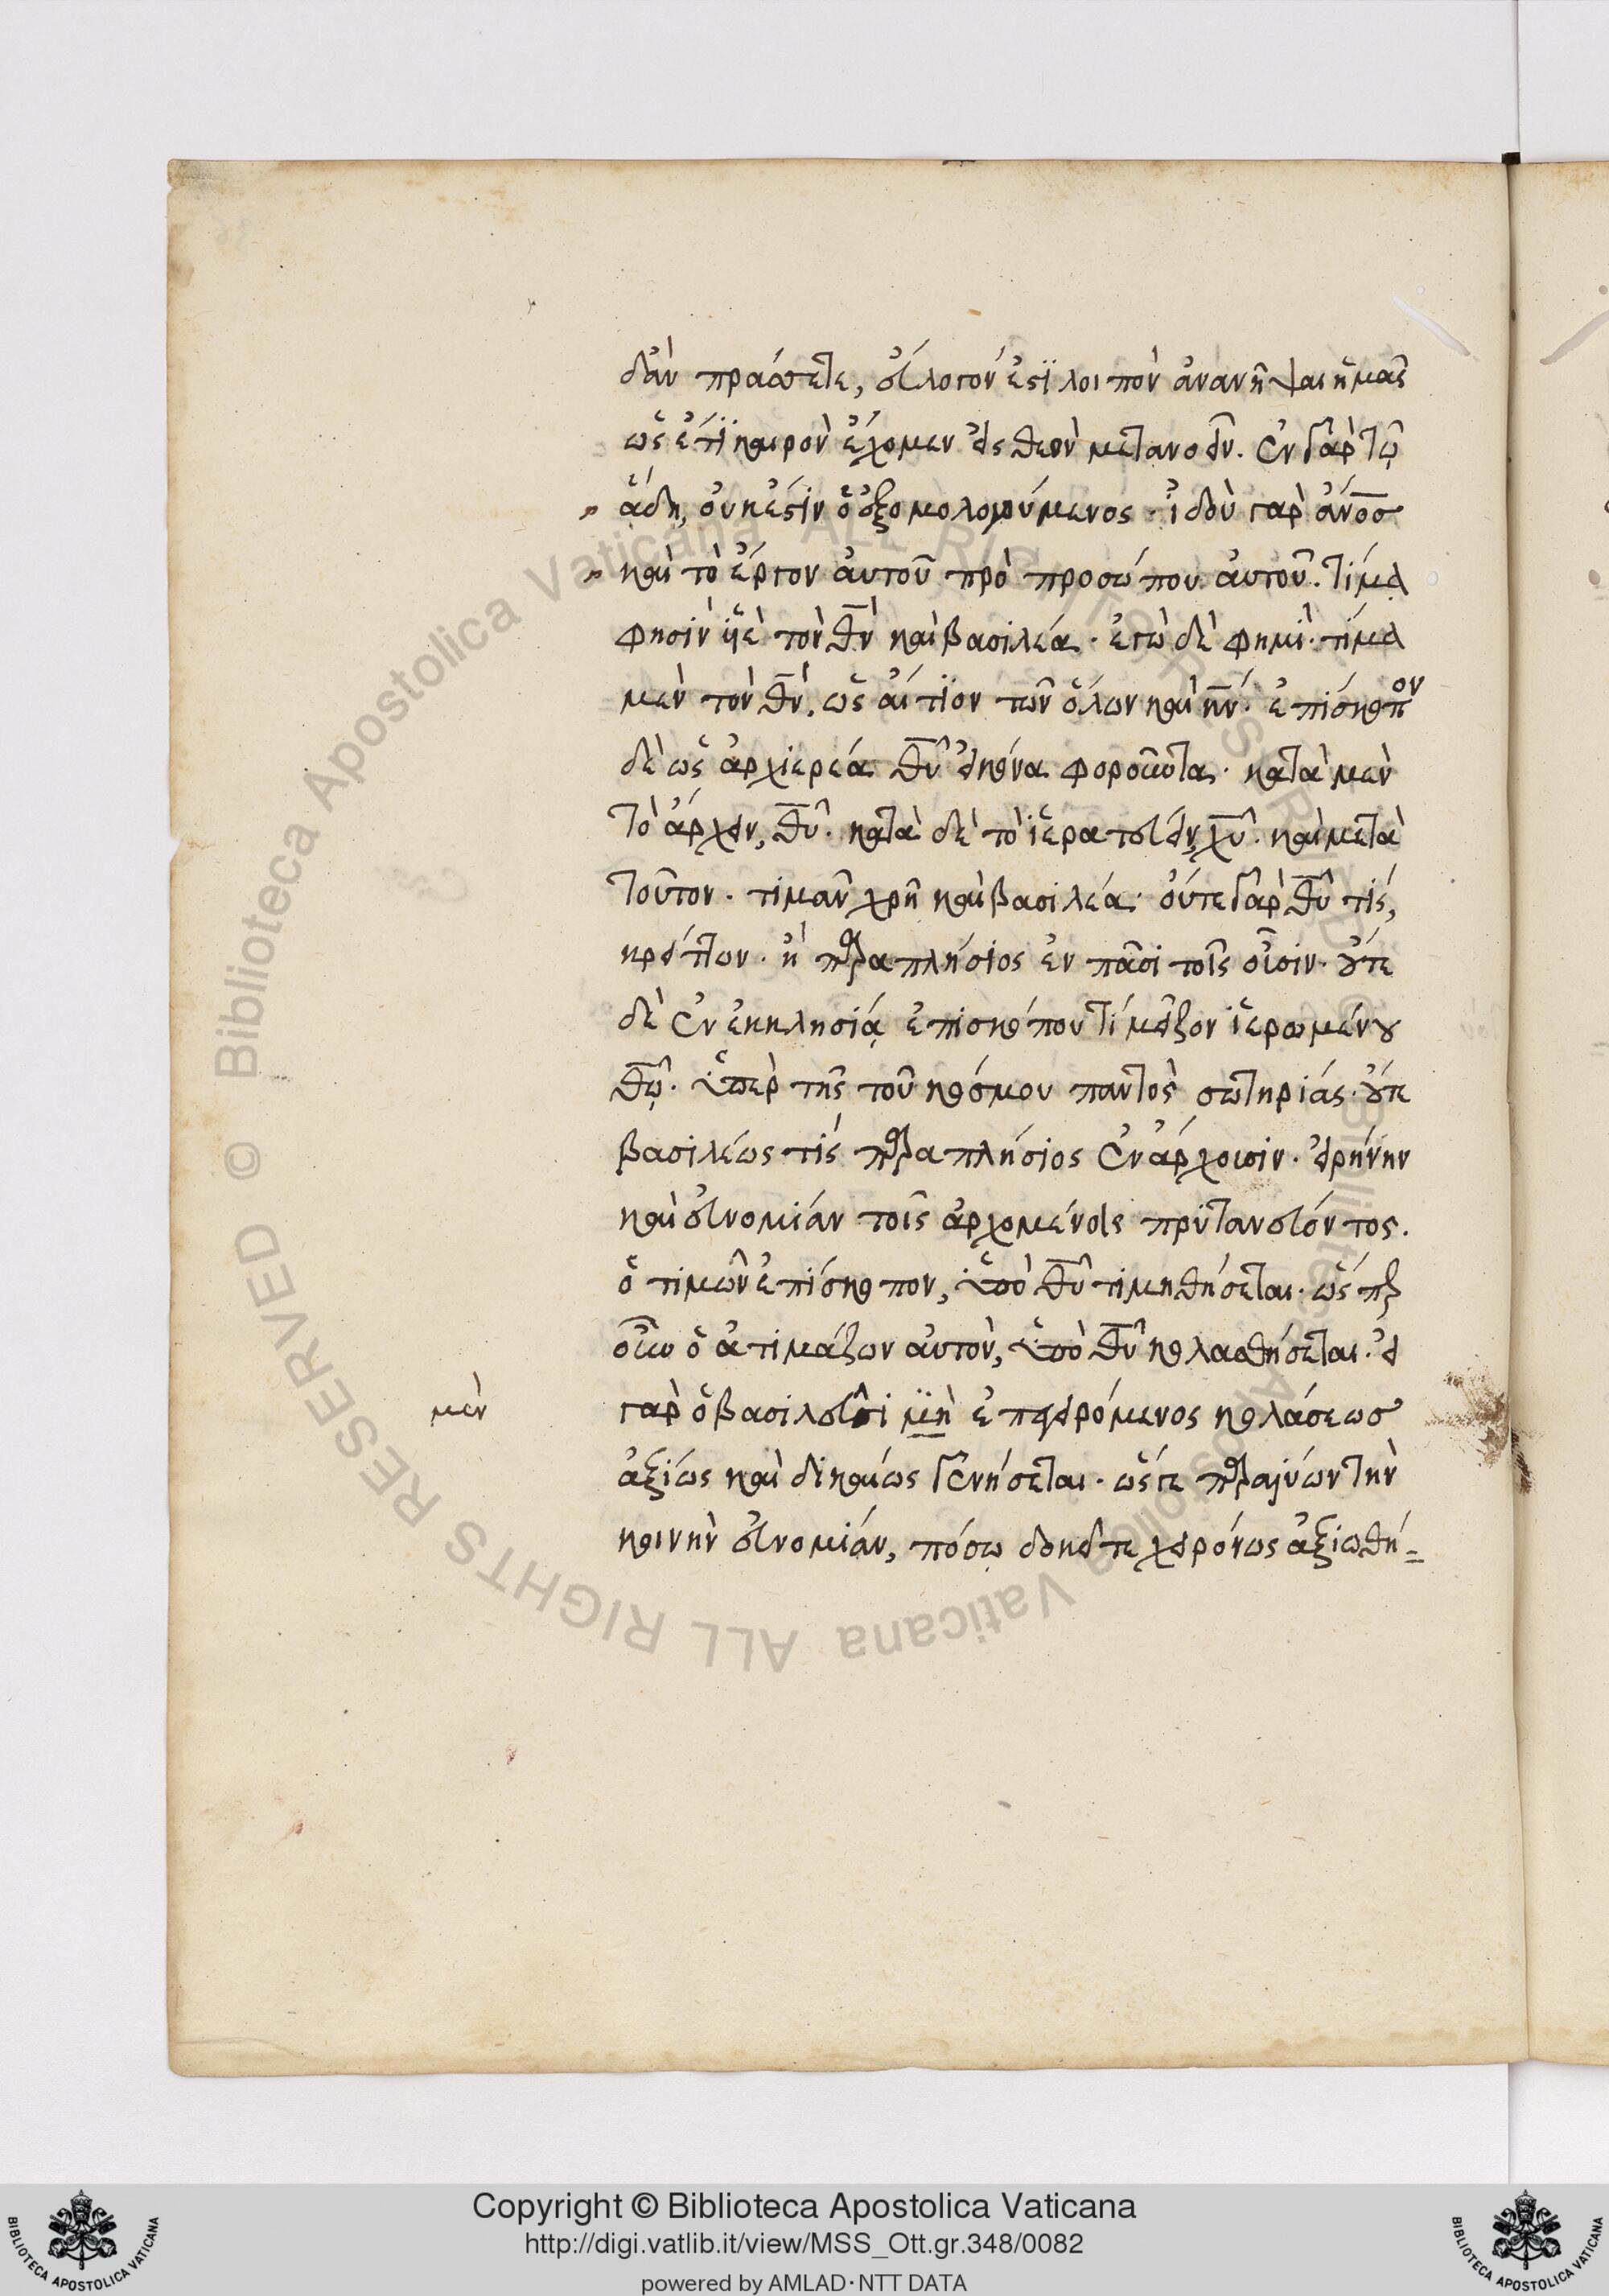 δὰν πράσσετε, εὔλογόν ἐστι λοιπὸν ἀνανῆψαι ἡμᾶς
ὡς ἔτι καιρὸν ἔχομεν εἰς θεὸν μετανοεῖν. ἐν γὰρ τῷ
ᾅδῃ, οὐκ ἔστιν ὁ ἐξομολογούμενος · ἰδοὺ γὰρ ἄνος
καὶ τὸ ἔργον αὐτοῦ πρὸ προσώπου αὐτοῦ. τίμα
φησὶν υἱὲ τὸν θν καὶ βασιλέα · ἐγὼ δὲ φημὶ · τίμα
μὲν τὸν θν, ὡς αἴτιον τῶν ὅλων καὶ κν · ἐπίσκοπον
δὲ ὡς ἀρχιερέα θυ εἰκόνα φοροῦντα · κατὰ μὲν
τὸ ἄρχειν, θυ · κατὰ δὲ τὸ ἱερατεύειν, χυ · καὶ μετὰ
τοῦτον · τιμᾶν χρὴ καὶ βασιλέα · οὔτε γὰρ θυ τίς,
κρείττων · ἢ παραπλήσιος ἐν πᾶσι τοῖς οὖσιν · οὔτε
δὲ ἐν ἐκκλησίᾳ ἐπισκόπου τί μεῖζον ἱερωμένου
θῳ · ὑπὲρ τῆς τοῦ κόσμου παντὸς σωτηρίας · οὔτε
βασιλέως τίς παραπλήσιος ἐν ἄρχουσιν · εἰρήνην
καὶ εὐνομίαν τοῖς ἀρχομένοις πρυτανεύοντος.
ὁ τιμῶν ἐπίσκοπον, ὑπὸ θυ τιμηθήσεται · ὥσπερ
οὖν ὁ ἀτιμάζων αὐτὸν, ὑπὸ θυ κολασθήσεται · εἰ
γὰρ ὁ βασιλεῦσι μὴ ἐπαιρόμενος κολάσεως
μὲν
ἀξίως καὶ δικαίως γενήσεται · ὥς γε παραλύων τὴν
κοινὴν εὐνομίαν, πόσῳ δοκεῖτε χείρονος ἀξιωθή=
Copyright © Biblioteca Apostolica Vaticana
http://digi.vatlib.it/view/MSS_Ott.gr.348/0082
powered by AMLAD·NTT DATA
BIBLIOTECA APOSTOLICA VATICANA
BIBLIOTECA APOSTOLICA VATICANA
© Biblioteca Apostolica Vaticana ALL RIGHTS RESERVED © Biblioteca Apostolica Vaticana ALL RIGHTS RESERVED